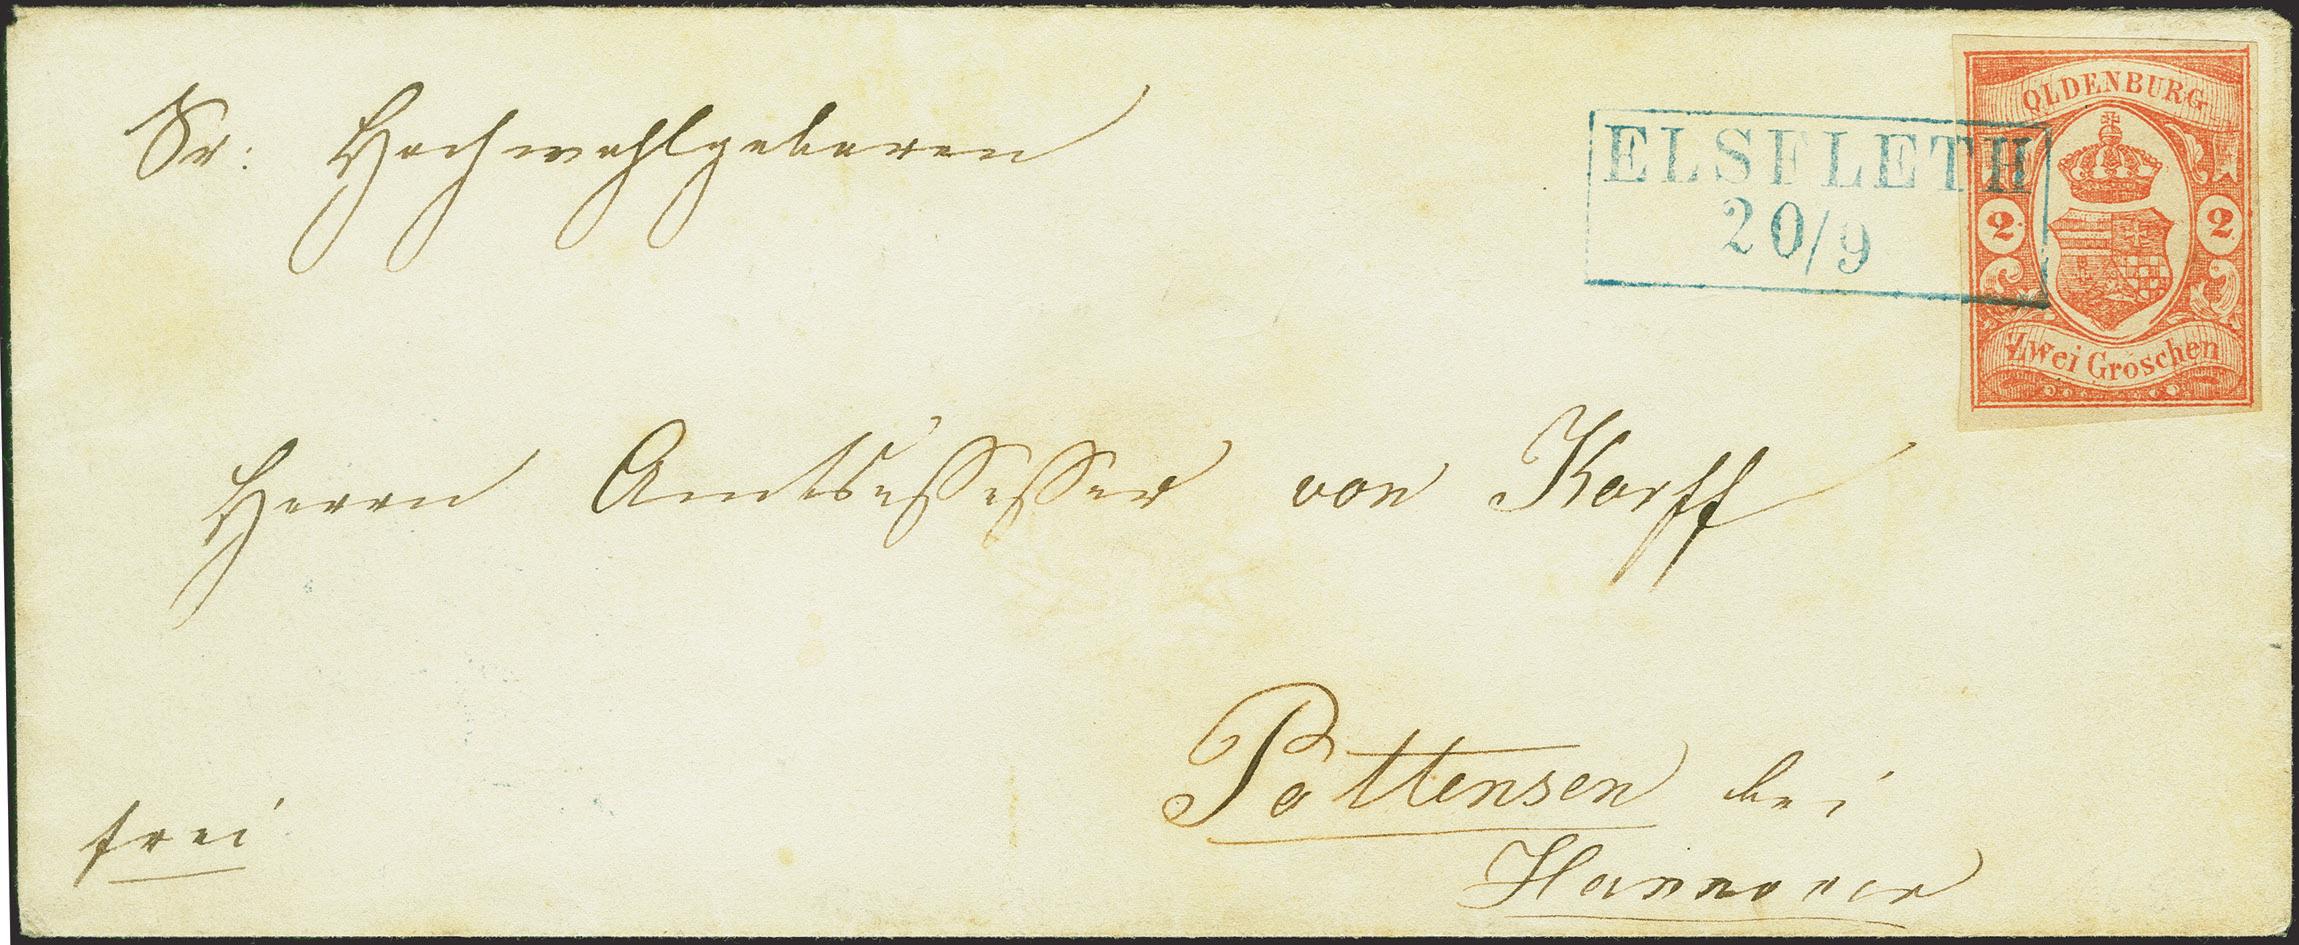 Sr: Hochwohlgeboren
ELSFLETH
20/9
OLDENBURG
2 2
Zwei Groschen
Herrn Amtsassessor von Korff
Pattensen bei
Hannover
frei